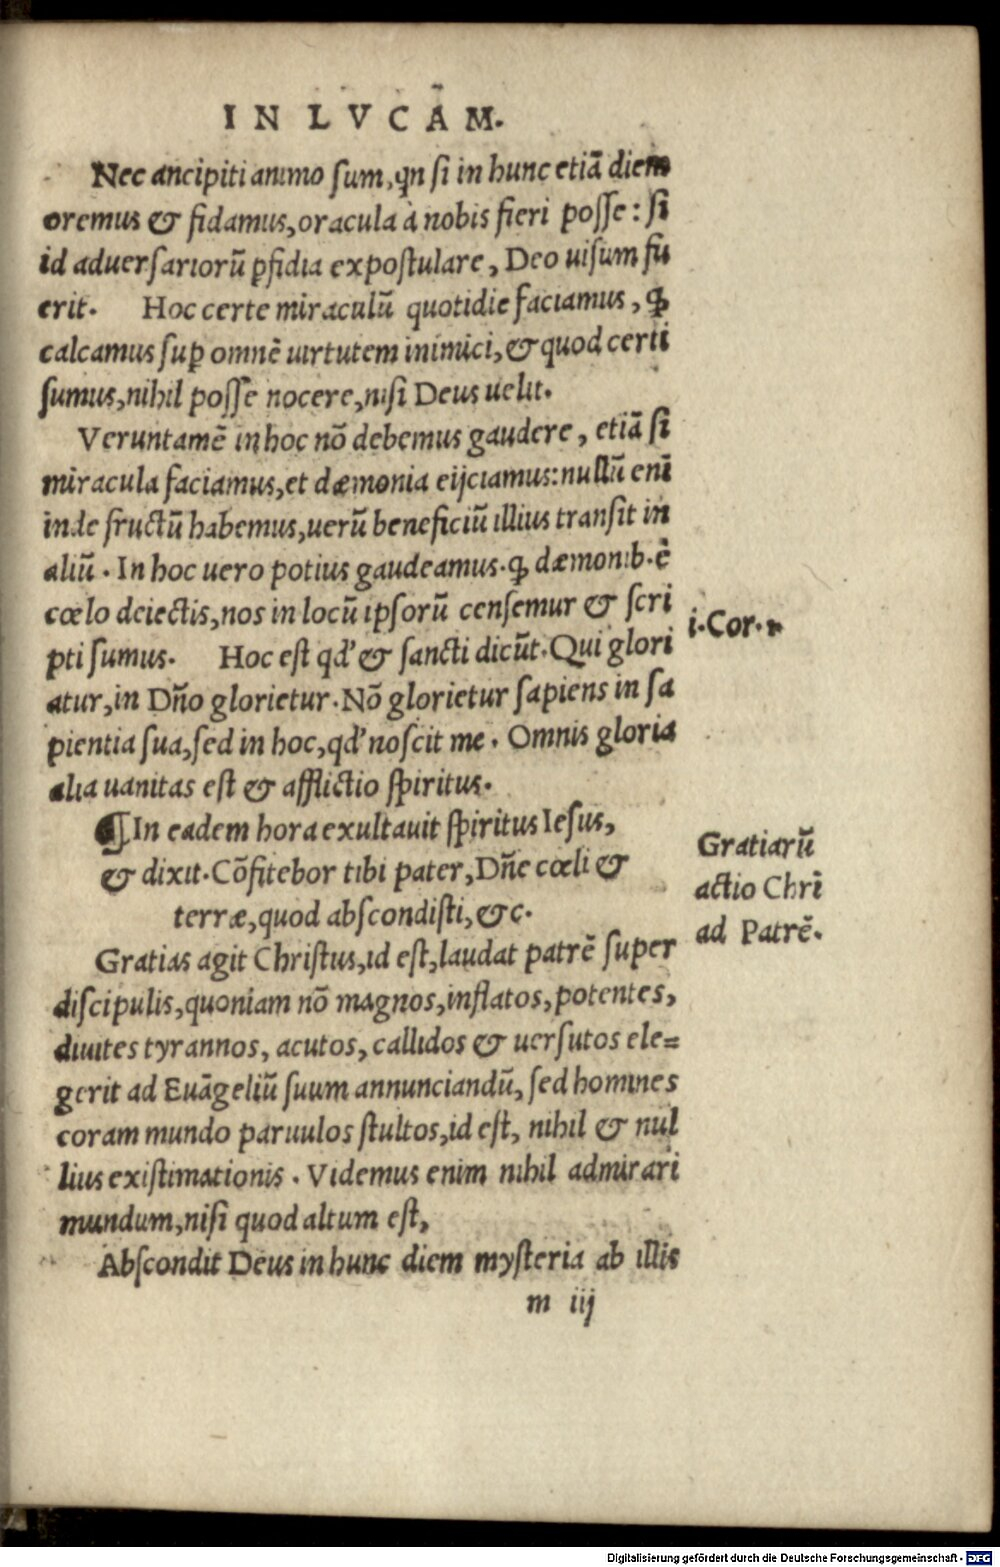 IN LVCAM.
Nec ancipiti animo sum, qn si in hunc etiã diem
oremus & fidamus, oracula à nobis fieri posse: si
id aduersariorũ ꝑfidia expostulare, Deo uisum fu
erit. Hoc certe miraculũ quotidie faciamus, ꝙ
calcamus suꝑ omnẽ uirtutem inimici, & quod certi
sumus, nihil posse nocere, nisi Deus uelit.
Veruntamẽ in hoc nõ debemus gaudere, etiã si
miracula faciamus, et dæmonia eijciamus: nullũ enĩ
inde fructũ habemus, uerũ beneficiũ illius transit in
aliũ. In hoc uero potius gaudeamus. ꝙ dæmonib. è
cœlo deiectis, nos in locũ ipsorũ censemur & scri
pti sumus. Hoc est qd' & sancti dicũt. Qui glori
i. Cor. 1
atur, in Dño glorietur. Nõ glorietur sapiens in sa
pientia sua, sed in hoc, qd' noscit me. Omnis gloria
alia uanitas est & afflictio spiritus.
¶ In eadem hora exultauit spiritus Iesus,
& dixit. Cõfitebor tibi pater, Dñe cœli &
terræ, quod abscondisti, &c.
Gratiarũ
actio Chrĩ
ad Patrẽ.
Gratias agit Christus, id est, laudat patrẽ super
discipulis, quoniam nõ magnos, inflatos, potentes,
diuites tyrannos, acutos, callidos & uersutos ele=
gerit ad Euãgeliũ suum annunciandũ, sed homines
coram mundo paruulos stultos, id est, nihil & nul
lius existimationis. Videmus enim nihil admirari
mundum, nisi quod altum est,
Abscondit Deus in hunc diem mysteria ab illis
m iij
Digitalisierung gefördert durch die Deutsche Forschungsgemeinschaft - DFG